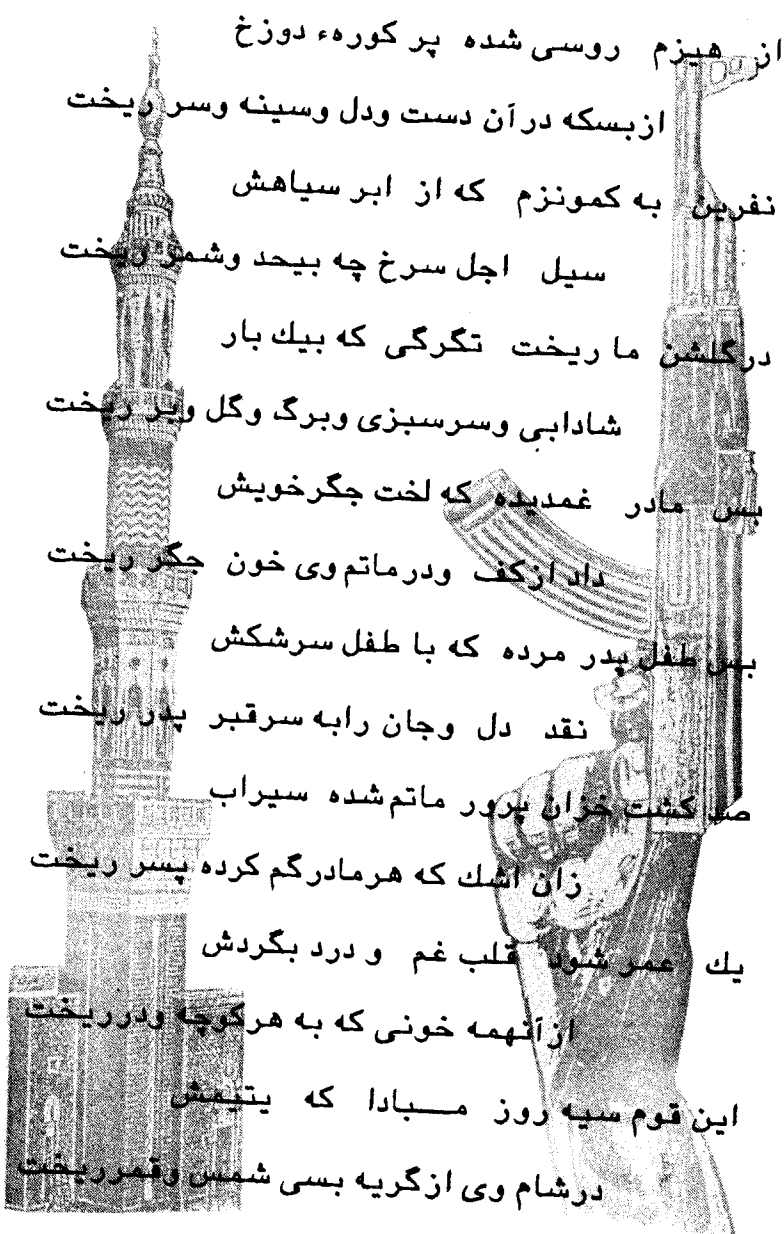 از هیزم روسی شده پر کورهء دوزخ
ازبسکه درآن دست ودل وسینه وسر ریخت
نفرین به کمونزم که از ابر سیاهش
سیل اجل سرخ چه بیحد وشمر ریخت
درگلشن ما ریخت تگرگی که بیك بار
شادابی وسرسبزی وبرگ وگل وبر ریخت
بس مادر غمدیده که لخت جگرخویش
داد ازکف ودرماتم وی خون جگر ریخت
بس طفل پدر مرده که با طفل سرشکش
نقد دل وجان رابه سرقبر پدر ریخت
صد کشت خزان پرور ماتم شده سیراب
زان اشك که هرمادرگم کرده پسر ریخت
یك عمر شود قلب غم و درد بگردش
ازآنهمه خونی که به هرکوچه ودرریخت
این قوم سیه روز مـــبادا که یتیمش
درشام وی ازگریه بسی شمس وقمرریخت